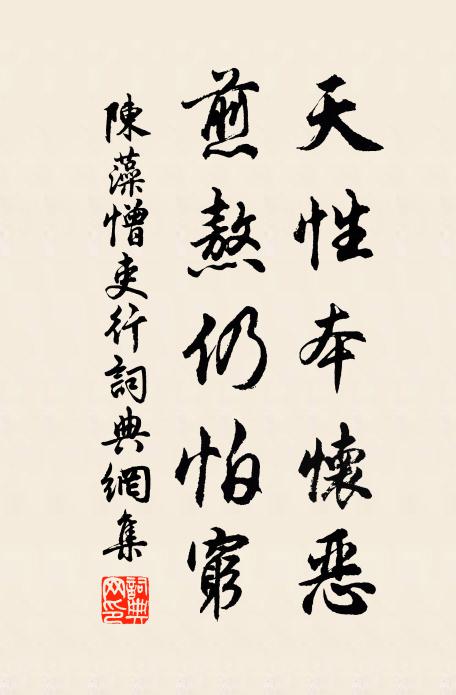 天性本懷惡
煎熬仍怕窮
陳藻憎吏行詞典網集
詞典网印